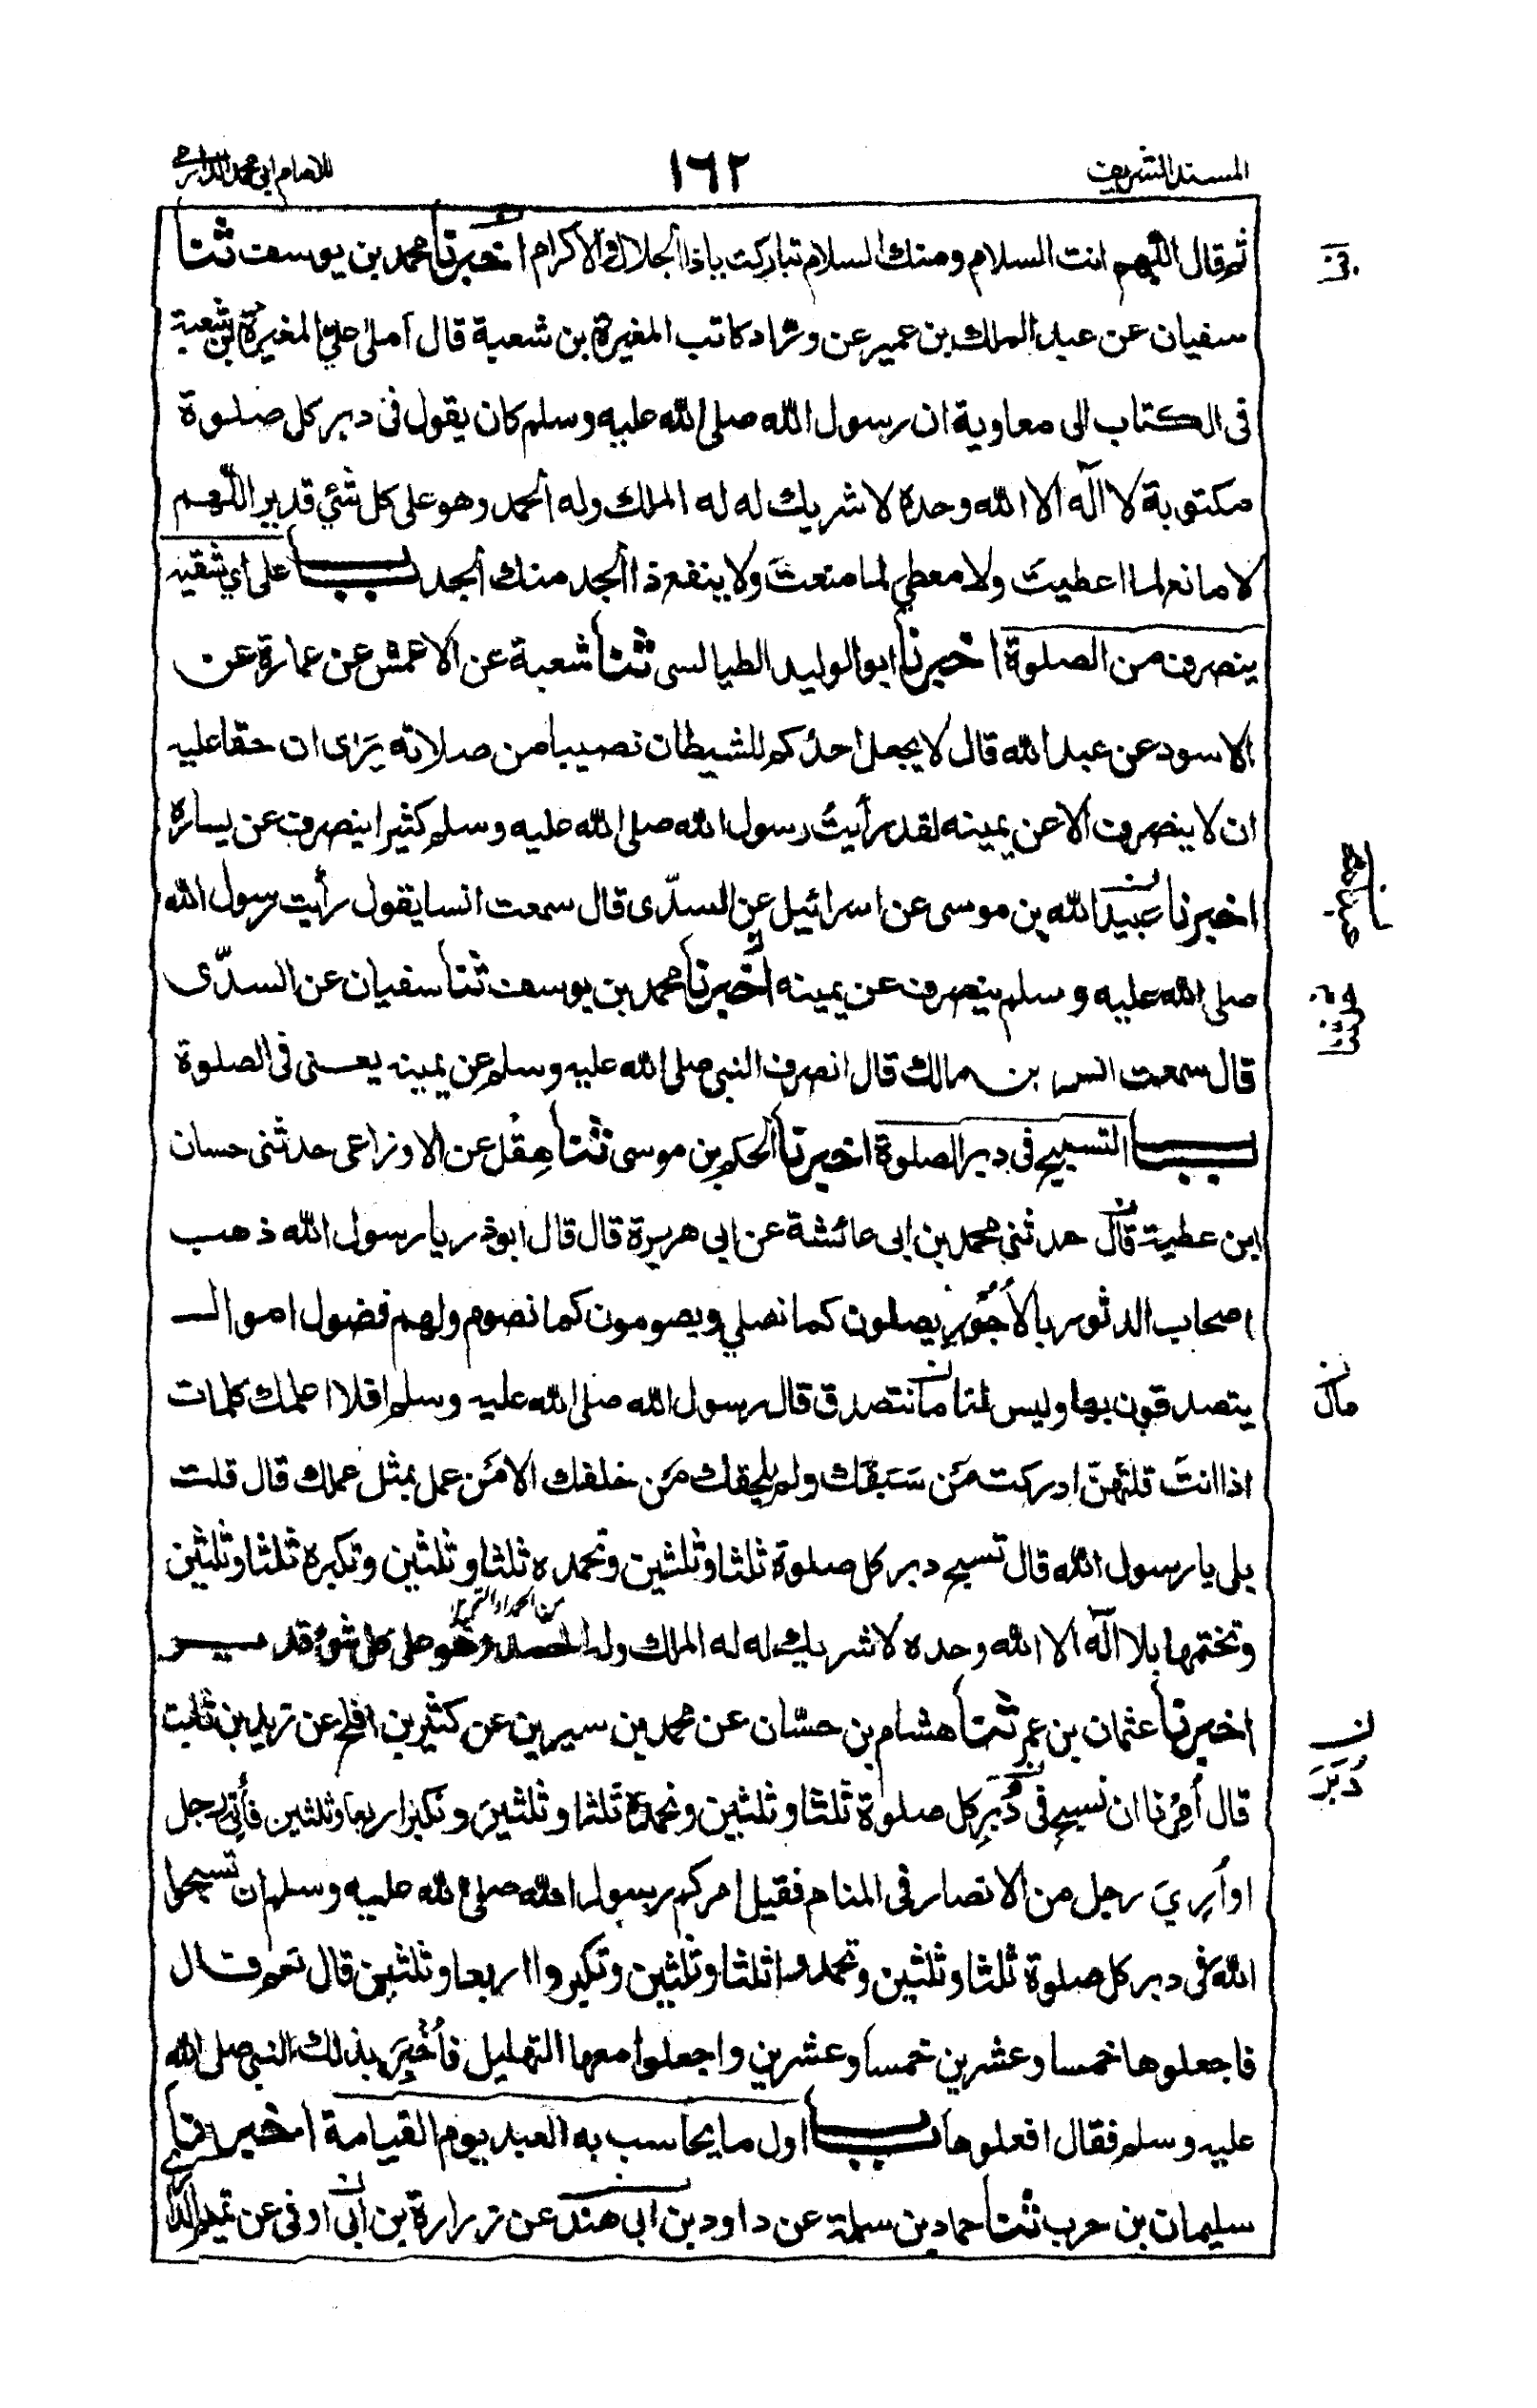 المسند الشريف
١٦٢
للامام ابي محمد الدارمي
ثم قال اللهم انت السلام ومنك السلام تباركت ياذا الجلال والاكرام اخبرنا محمد بن يوسف ثنا
سفيان عن عبد الملك بن عمير عن وراد كاتب المغيرة بن شعبة قال املى علي المغيرة بن شعبة
فى الكتاب الى معاوية ان رسول الله صلى الله عليه وسلم كان يقول فى دبر كل صلوة
مكتوبة لا اله الا الله وحده لا شريك له له الملك وله الحمد وهو على كل شئ قدير اللهم
لا مانع لما اعطيتَ ولا معطي لما منعتَ ولا ينفع ذا الجد منك الجد باب على اي شقيه
ينصرف من الصلوة اخبرنا ابو الوليد الطيالسى ثنا شعبة عن الاعمش عن عمارة عن
الاسود عن عبد الله قال لا يجعل احدكم للشيطان نصيبا من صلاته يَرٰى ان حقا عليه
ان لا ينصرف الا عن يمينه لقد رأيتُ رسول الله صلى الله عليه وسلم كثيرا ينصرف عن يساره
اخبرنا عبيد الله بن موسى عن اسرائيل عن السدّى قال سمعت انسا يقول رأيت رسول الله
صلى الله عليه وسلم ينصرف عن يمينه اخبرنا محمد بن يوسف ثنا سفيان عن السدّى
حدثنا
قال سمعت انس بن مالك قال انصرف النبى صلى الله عليه وسلم عن يمينه يعنى فى الصلوة
باب التسبيح فى دبر الصلوة اخبرنا الحكم بن موسى ثنا هِقْل عن الاوزاعى حدثنى حسان
ابن عطية قال حدثنى محمد بن ابى عائشة عن ابى هريرة قال قال ابو ذر يا رسول الله ذهب
اصحاب الدثور بالأُجُورِ يصلون كما نصلي ويصومون كما نصوم ولهم فضول اموال
يتصدقون بها وليس لنا ما نتصدق قال رسول الله صلى الله عليه وسلم افلا اعلمك كلمات
مال
اذا انتَ قلتَهنّ ادركت مَن سَبَقَك ولم يلحقك مَن خلفك الا مَن عمل بمثل عملك قال قلت
بلى يا رسول الله قال تسبح دبر كل صلوة ثلثا وثلثين وتحمده ثلثا وثلثين وتكبره ثلثا وثلثين
وتختمها بلا اله الا الله وحده لا شريك له له الملك وله الحمد وهو على كل شئ قدير
اخبرنا عثمان بن عمر ثنا هشام بن حسّان عن محمد بن سيرين عن كثير بن افلح عن زيد بن ثابت
ن
قال أُمِرْنا ان نسبح فى دُبُرِ كل صلوة ثلثا وثلثين ونحمده ثلثا وثلثين ونكبر اربعا وثلثين فأُتِيَ رجل
دُبَرَ
او اُرِيَ رجل من الانصار فى المنام فقيل امركم رسول الله صلى الله عليه وسلم ان تسبحوا
الله فى دبر كل صلوة ثلثا وثلثين وتحمدوا ثلثا وثلثين وتكبروا اربعا وثلثين قال نعم قال
فاجعلوها خمسا وعشرين خمسا وعشرين واجعلوا معها التهليل فأُخْبِرَ بذلك النبى صلى الله
عليه وسلم فقال افعلوها باب اول ما يحاسب به العبد يوم القيامة اخبرنا
سليمان بن حرب ثنا حماد بن سلمة عن داود بن ابى هند عن زرارة بن ابى اوفى عن تميم الدارى